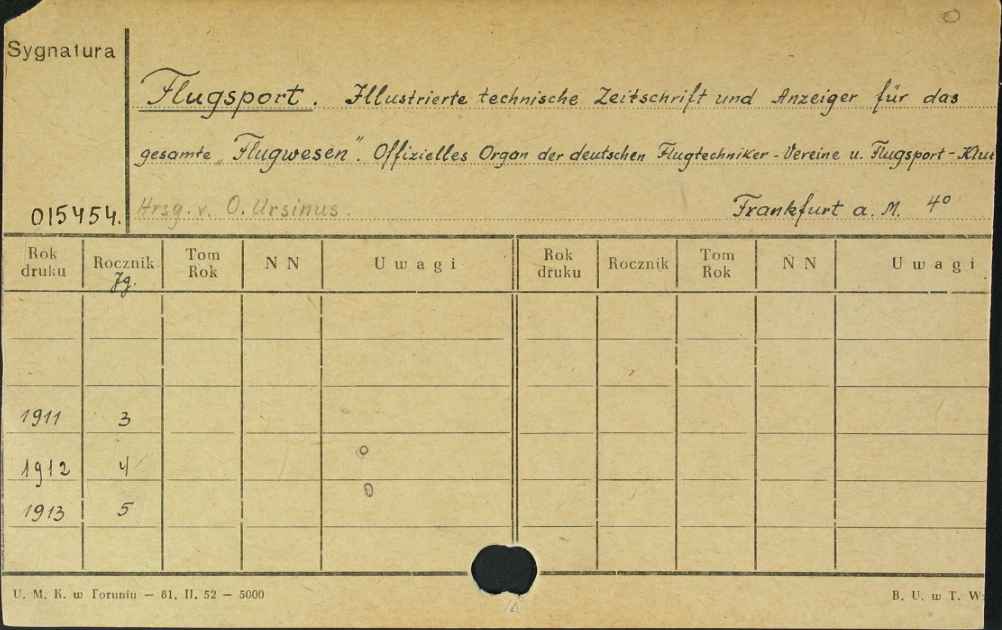 Sygnatura
Flugsport. Illustrierte technische Zeitschrift und Anzeiger für das
gesamte „Flugwesen". Offizielles Organ der deutschen Flugtechniker-Vereine u. Flugsport-Klu
015454. Hrsg. v. O. Ursinus. Frankfurt a. M. 4°
Rok druku Rocznik Jg. Tom Rok N N Uwagi Rok druku Rocznik Tom Rok N N Uwagi
1911 3
1912 4
1913 5
U. M. K. w Toruniu — 61. II. 52 — 5000 B. U. w T. W